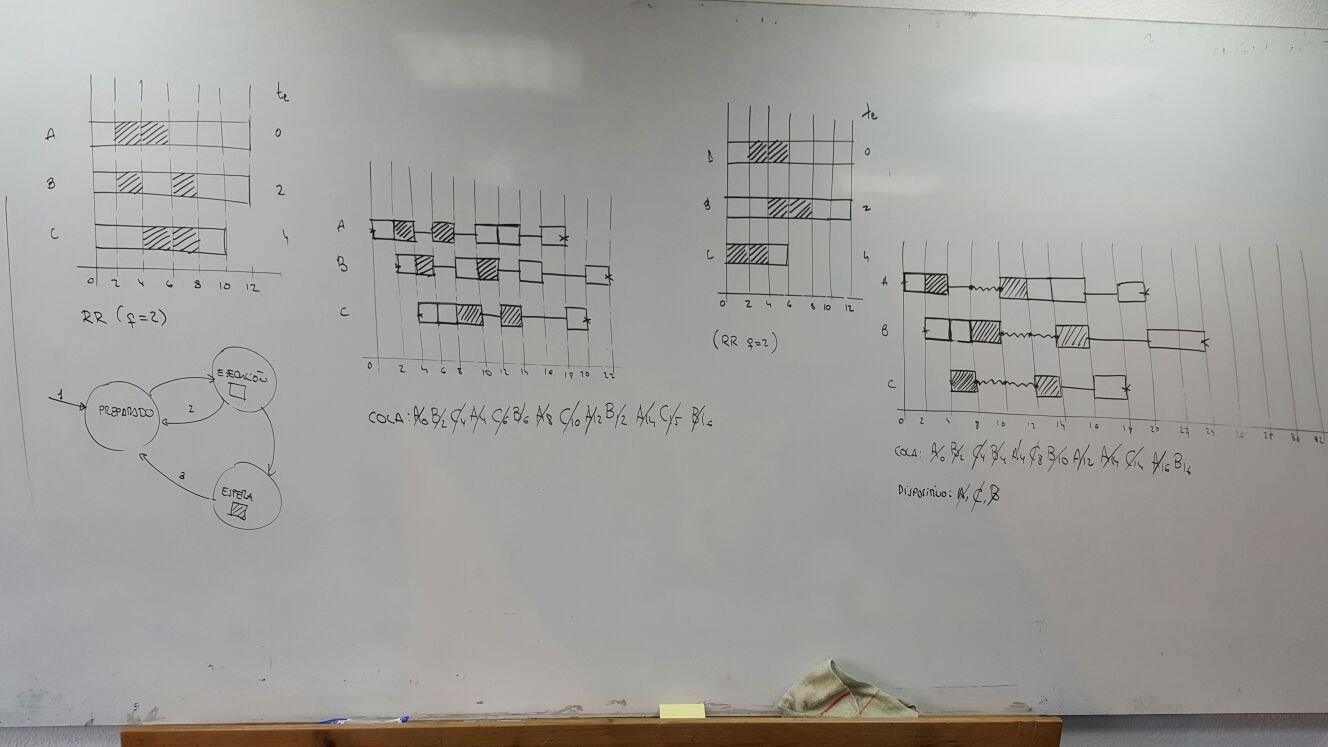 te
A 0
B 2
C 4
0 2 4 6 8 10 12
RR (q=2)
1
PREPARADO
EJECUCIÓN
2
3
ESPERA
A
B
C
0 2 4 6 8 10 12 14 18 20 22
COLA: A/0 B/2 C/4 A/4 C/6 B/6 A/8 C/10 A/12 B/12 A/14 C/15 B/16
te
A 0
B 2
C 4
0 2 4 6 8 10 12
(RR q=2)
A
B
C
0 2 4 6 8 10 12 14 16 18 20 22 24 26 28 30 32
COLA: A/0 B/2 C/4 B/4 A/4 C/8 B/10 A/12 A/14 C/14 A/16 B16
DISPOSITIVO: A, C, B